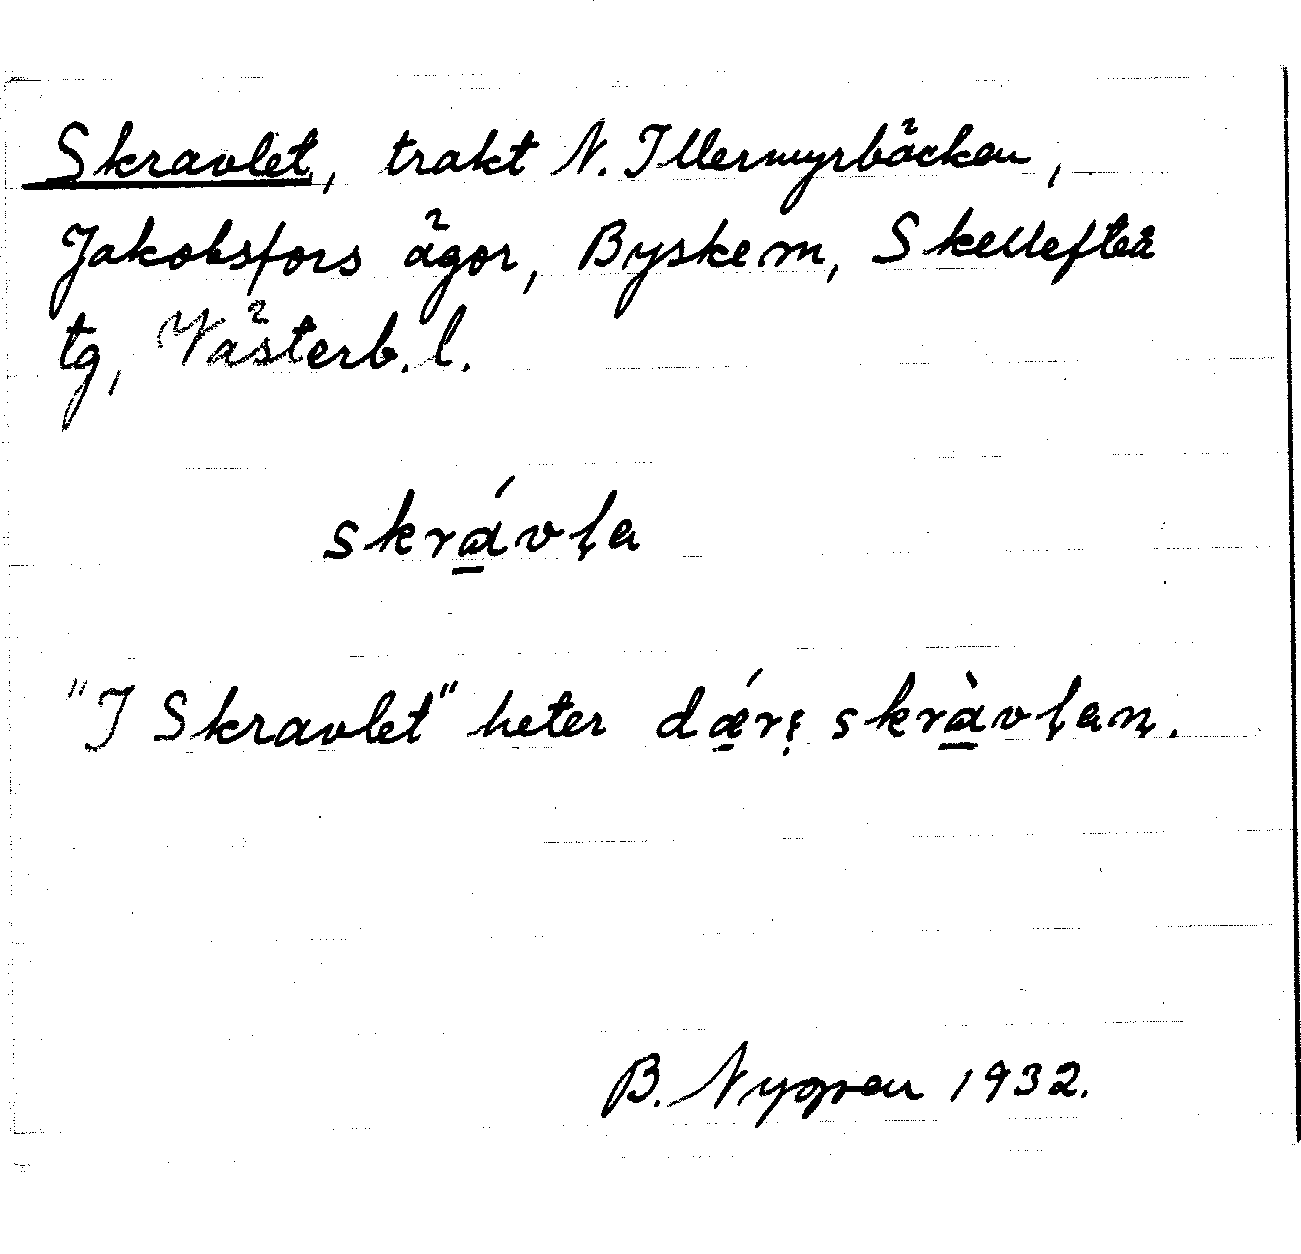 Skravlet, trakt N. Illermyrbäcken,
Jakobsfors ägor, Byske m, Skellefteå
tg, Västerb. l.
skrávḷa
"I Skravlet" heter dǽri̥ skràvḷaṇ.
B. Nygren 1932.